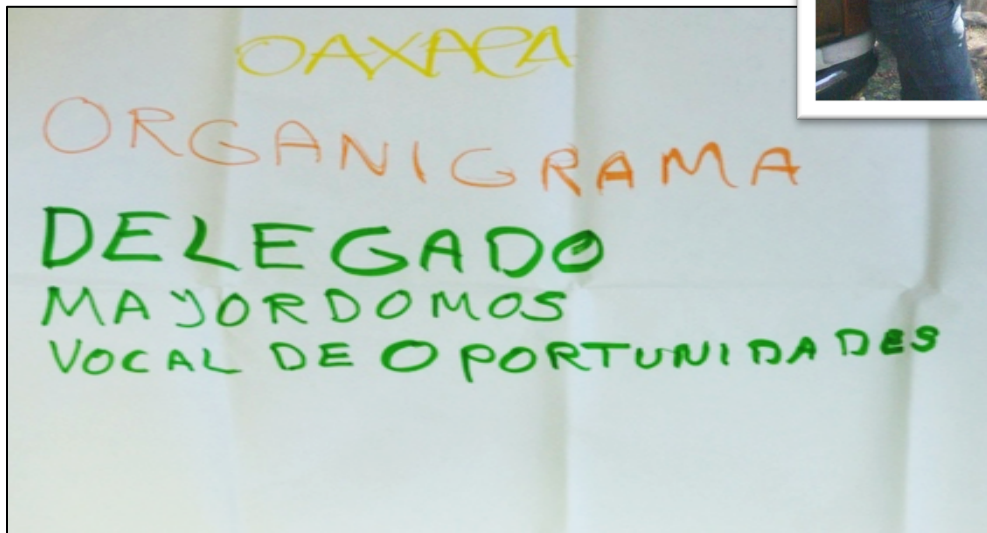 OAXACA
ORGANIGRAMA
DELEGADO
MAYORDOMOS
VOCAL DE OPORTUNIDADES